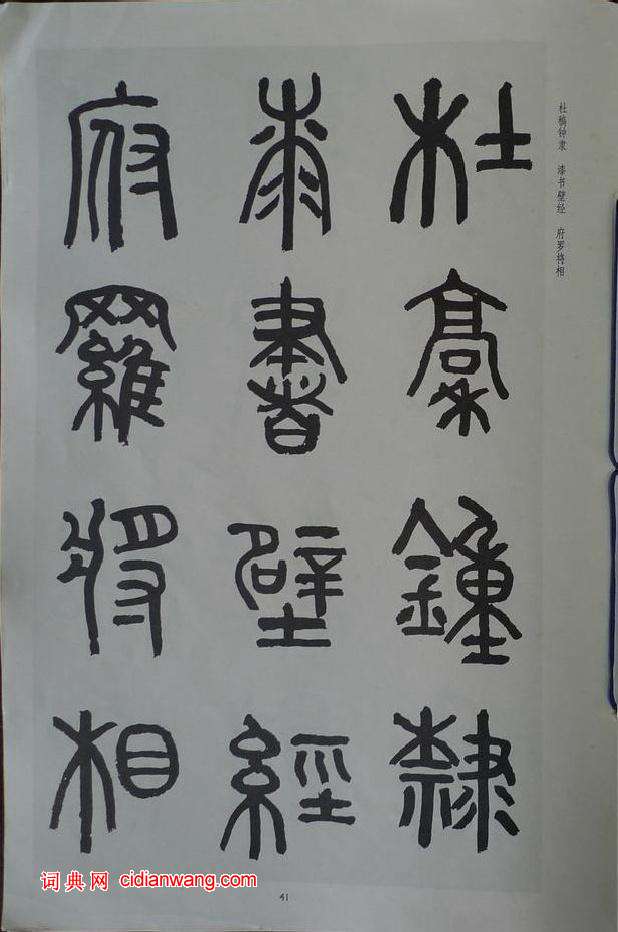 杜稾鍾隸
桼書壁經
府羅將相
杜槁钟隶 漆书壁经 府罗将相
词典网 cidianwang.com
41